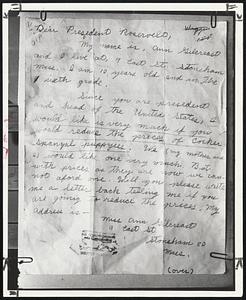 Dear President Roosevelt,
My name is, Ann Gilcreast
and I live at, 9 East St. Stoneham
Mass. I am 10 years old and in the
sixth grade.
Since you are president
and head of the United States, I
would like it very much if you
would reduce the prices of Cocker
Spaniel puppys. We (my mother and
I) would like one very much. But
with prices as they are now we can
not aford one. Will you please write
me a letter back telling me if you
are going to reduce the prices. My
address is —
Miss Ann Gilcreast
9 East St.
Stoneham 80
Mass.
(over)